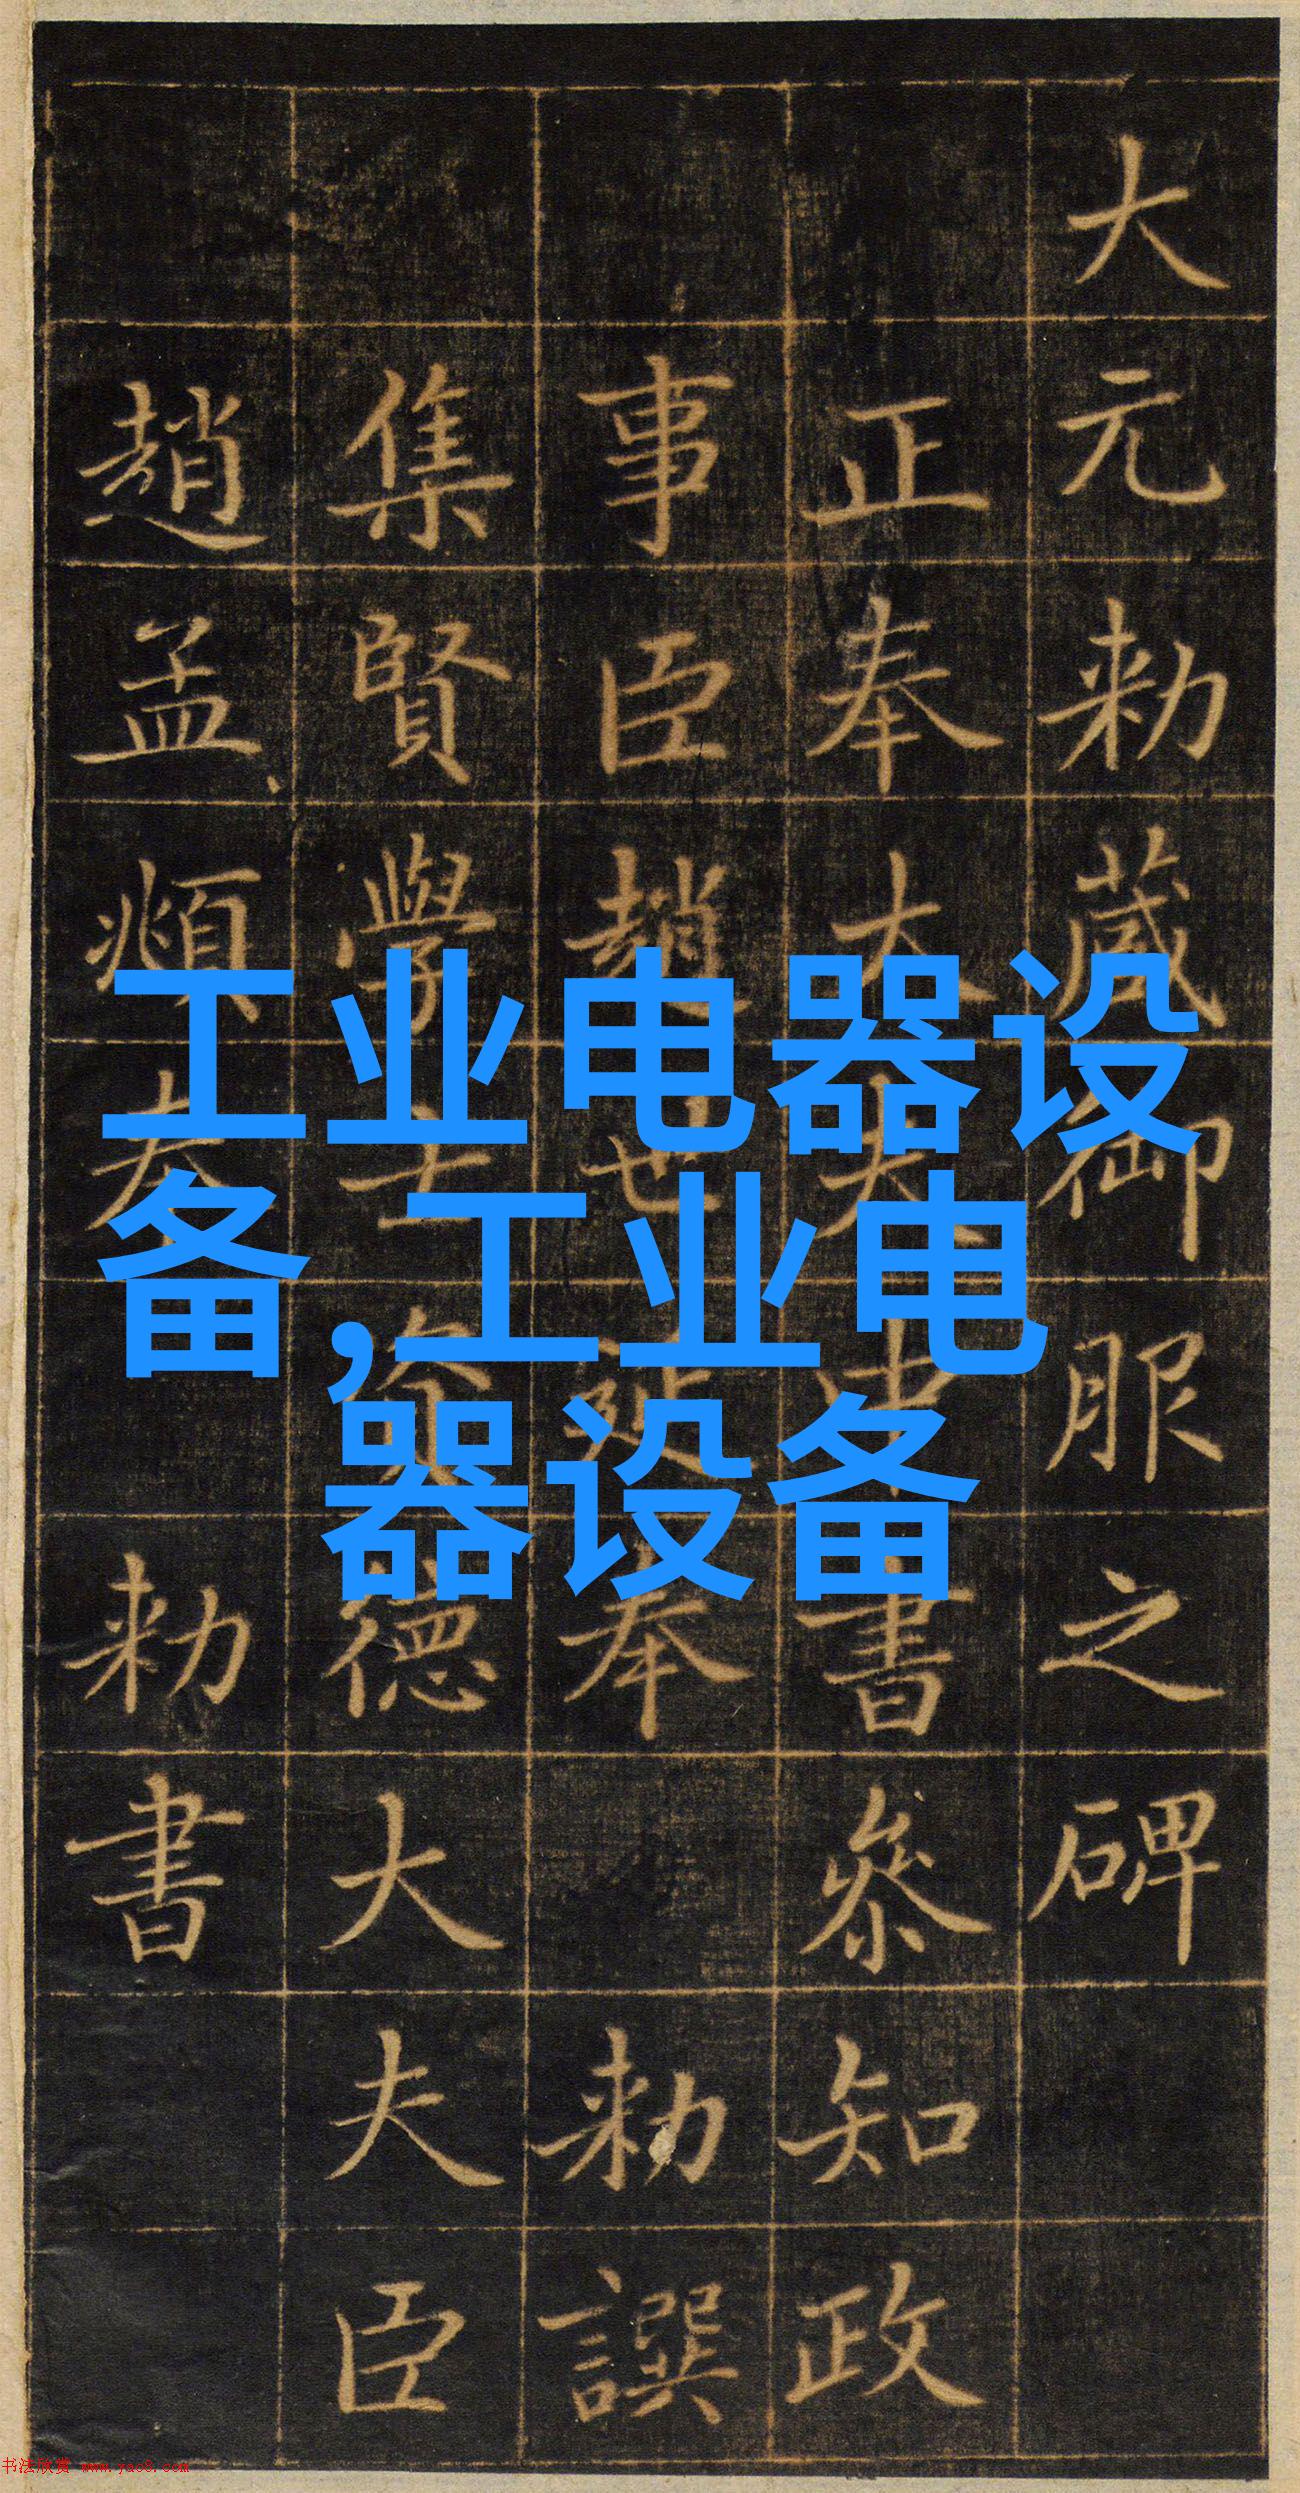 大元勑蔵御服之碑
正奉大夫中書叅知政
事臣趙世延奉勑譔
集賢學士資德大夫臣
趙孟頫奉勑書
工业电器设
备,工业电
器设备
书法欣赏 www.yac8.com